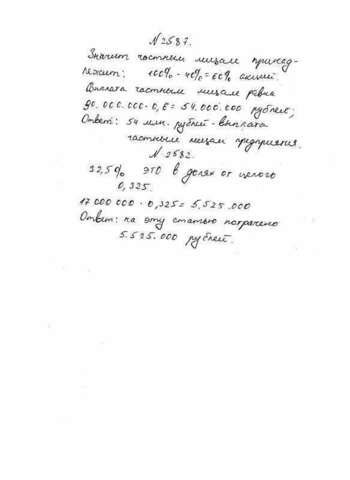 №2587.
Значит частным лицам принад-
лежит: 100% - 40% = 60% акций.
Оплата частным лицам равна
90.000.000 · 0,6 = 54.000.000 рублей;
Ответ: 54 млн. рублей - выплата
частным лицам предприятия.
№2582.
32,5% это в долях от целого
0,325.
17 000 000 · 0,325 = 5.525.000
Ответ: на эту статью потрачено
5.525.000 рублей.